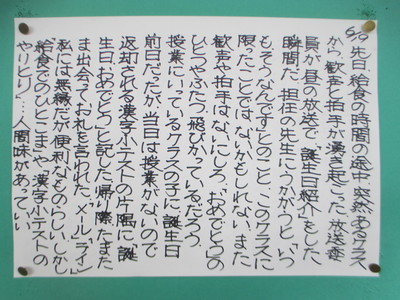 5/9 先日、給食の時間の途中、突然あるクラス
から歓声と拍手が湧き起こった。放送委
員が昼の放送で、誕生日紹介をした
瞬間だ。担任の先生にうかがうと、「いつ
も、そうなんです」とのこと。このクラスに
限ったことではないかもしれない。また
歓声や拍手はないにしろ、「おめでとう」の
ひとつやふたつ飛びかっているだろう。
授業にいっているクラスの子に誕生日
前日だったが、当日は授業がないので
返却される漢字小テストの片隅に、「誕
生日、おめでとう」と記した。帰り際、たまた
ま出会ってお礼を言われた。「メール」「ライン」
私には無縁だが便利なものらしい。しかし
「給食でのひとこま」や「漢字小テストの
やりとり」…人間味があっていい